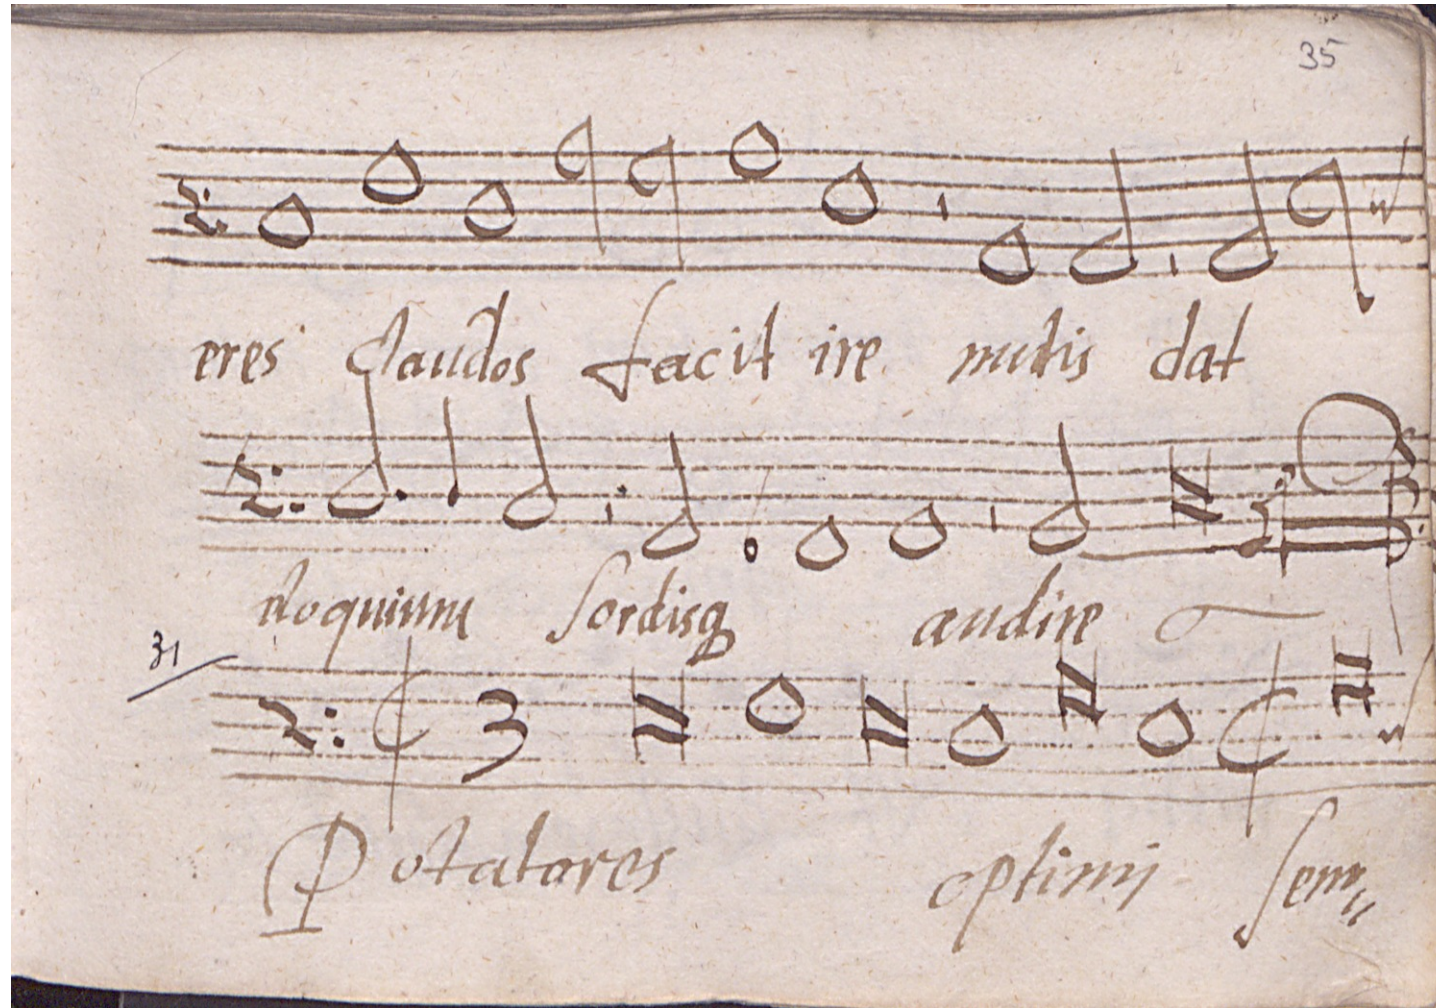 35
eres claudos facit ire mutis dat
eloquium sordisq audire
31
Potatores optimi Sem